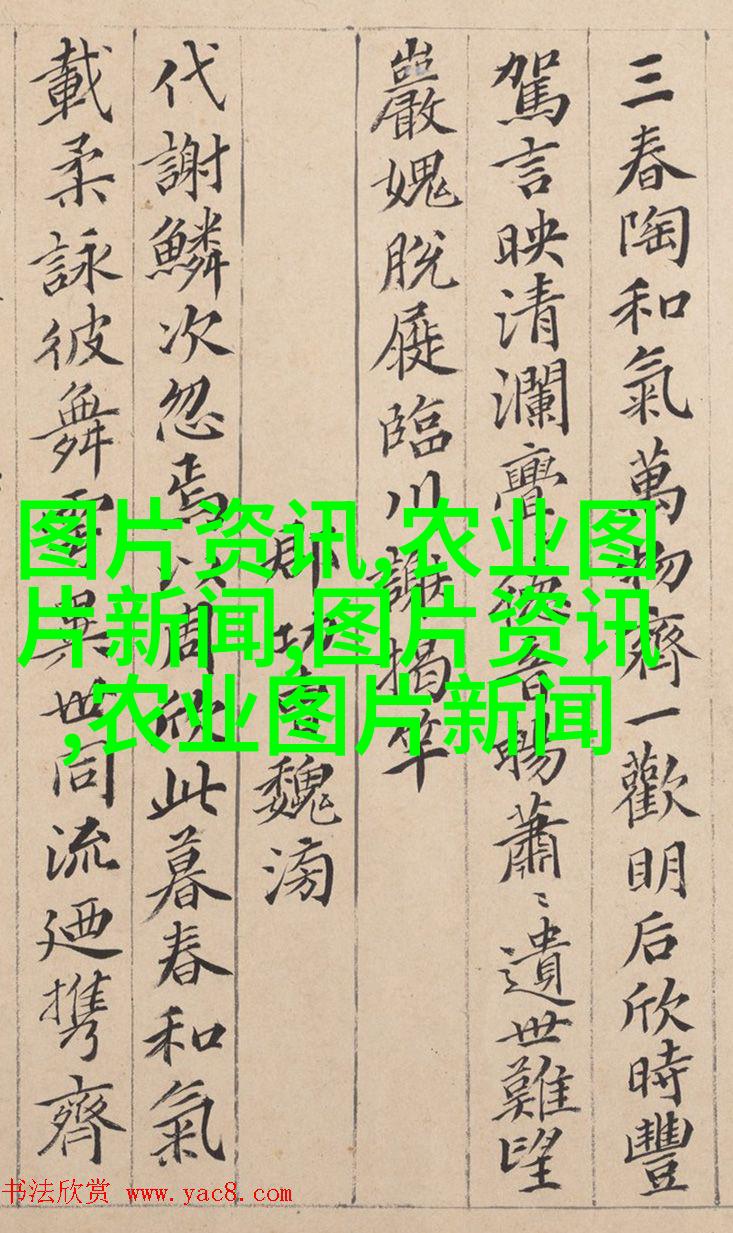 三春陶和氣萬物齊一歡明后欣時豐
駕言映清瀾亹德音暢蕭〻遺世難望
巖愧脫屣臨川謝揭竿
郡功曹魏滂
代謝鱗次忽焉以周欣此暮春和氣
載柔詠彼舞雩異世同流廼携齊
图片资讯,农业图
片新闻,图片资讯
,农业图片新闻
书法欣赏 www.yac8.com